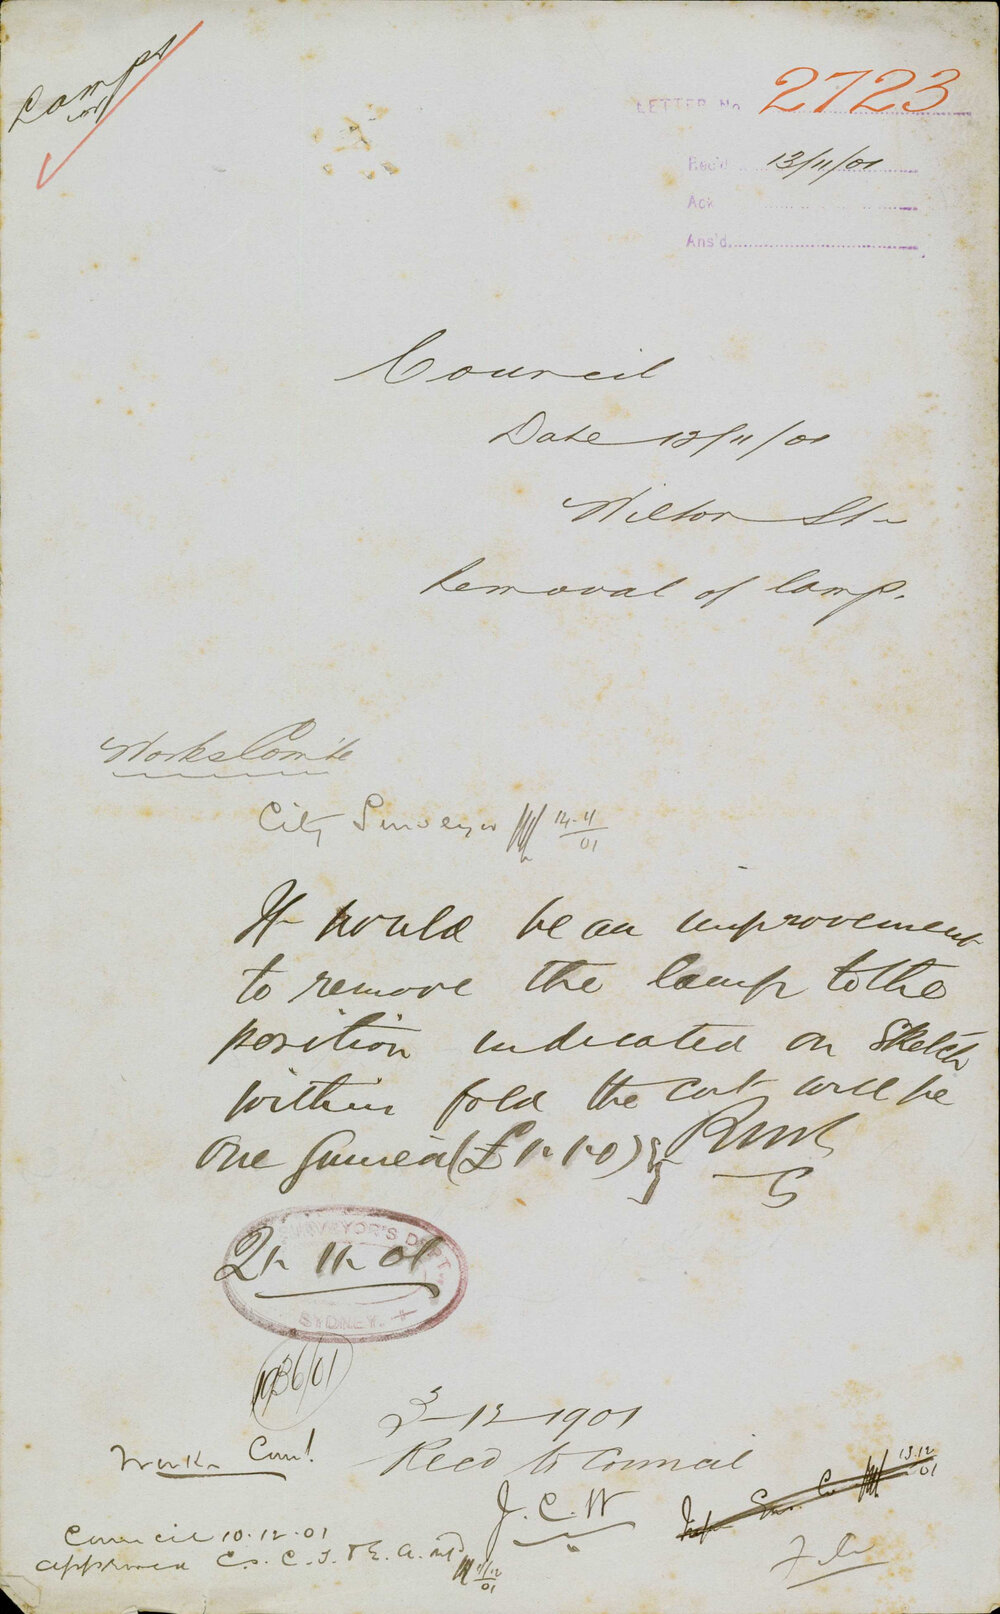 Lamps
LETTER No 2723
Rec'd 13/11/01
Ack
Ans'd
Council
Date 13/11/01
Wilton St
Removal of lamp.
Works Com'te
City Surveyor 14.11/01
It would be an improvement
to remove the lamp to the
position indicated on Sketch
within fold the cost will be
One Guinea (£1-1-0)
CS
SURVEYOR'S DEPT
21.11.01
SYDNEY.
1036/01
3-12-1901
Works Com!
Recd to Council
J.C.W
13.12/01
Council 10.12.01
approved Cs. C.S.
11/12/01
File